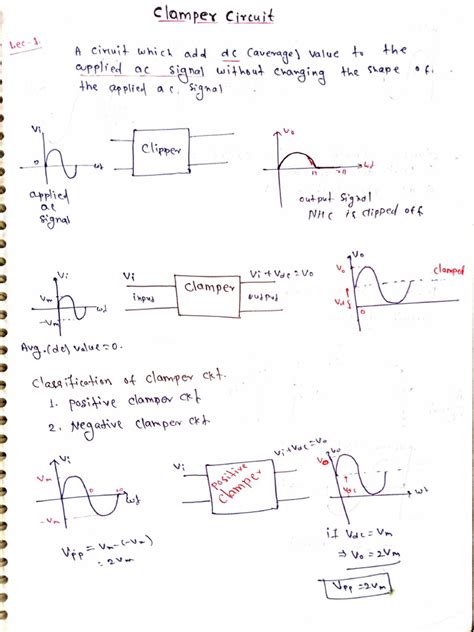 Clamper Circuit
Lec-1.
A circuit which add dc (average) value to the
applied ac signal without changing the shape of
the applied a.c. signal
Vi
0
ωt
applied
ac
signal
Clipper
Vo
π
2π
ωt
output signal
NHC is clipped off
Vi
Vm
-Vm
ωt
Avg. (dc) value = 0.
Vi
input
Clamper
Vi + Vdc = Vo
output
Vo
Vo
Vdc
0
clamped
Classification of clamper ckt.
1. positive clamper ckt
2. Negative clamper ckt.
Vi
Vm
-Vm
ωt
Vpp = Vm-(-Vm)
= 2Vm
Vi
positive
clamper
Vi + Vdc = Vo
Vo
Vo
Vdc
ωt
if Vdc = Vm
⇒ Vo = 2Vm
Vpp = 2Vm